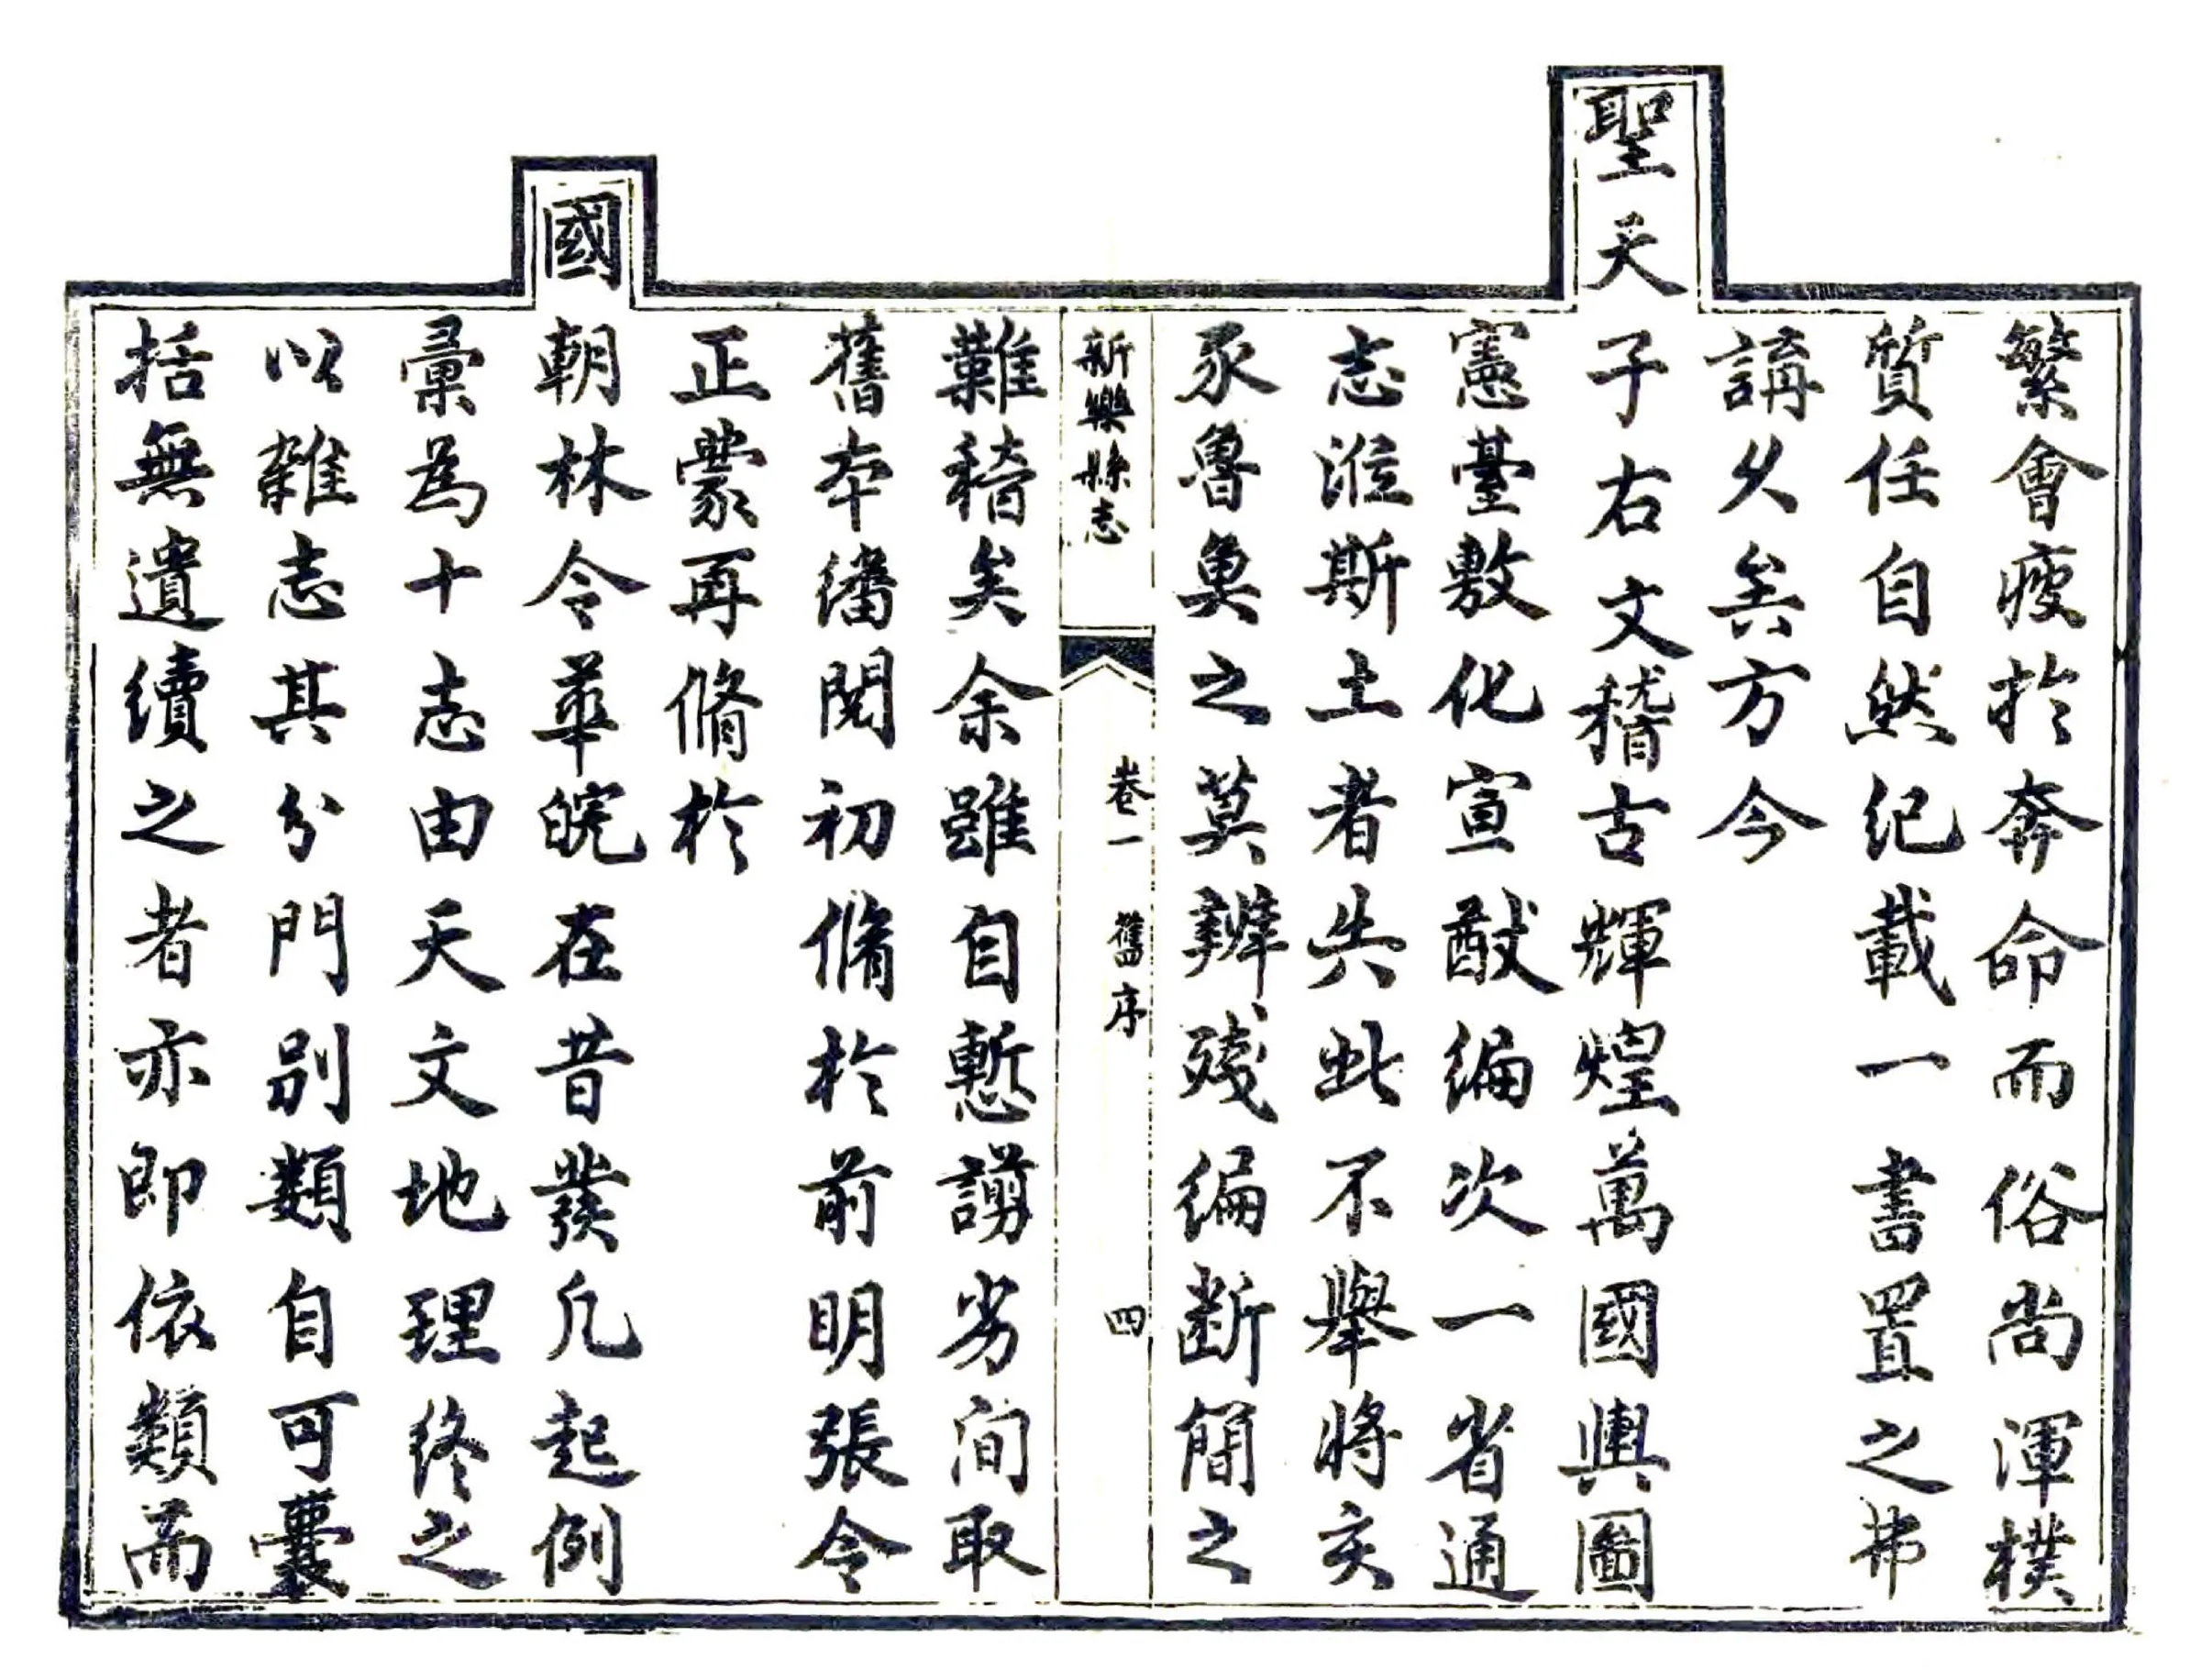 繁會瘦於奔命而俗尚渾樸
質任自然紀載一書置之弗
講久矣方今
聖天子右文稽古輝煌萬國輿圖
憲臺敷化宣猷編次一省通
志涖斯土者失此不舉將亥
豕魯魚之莫辨殘編斷簡之
新樂縣志
卷一 舊序
四
難稽矣余雖自慙譾劣泃取
舊本繙閱初脩於前明張令
正蒙再脩於
國朝林令華皖在昔發凡起例
彙為十志由天文地理終之
以雜志其分門別類自可囊
括無遺續之者亦即依類而